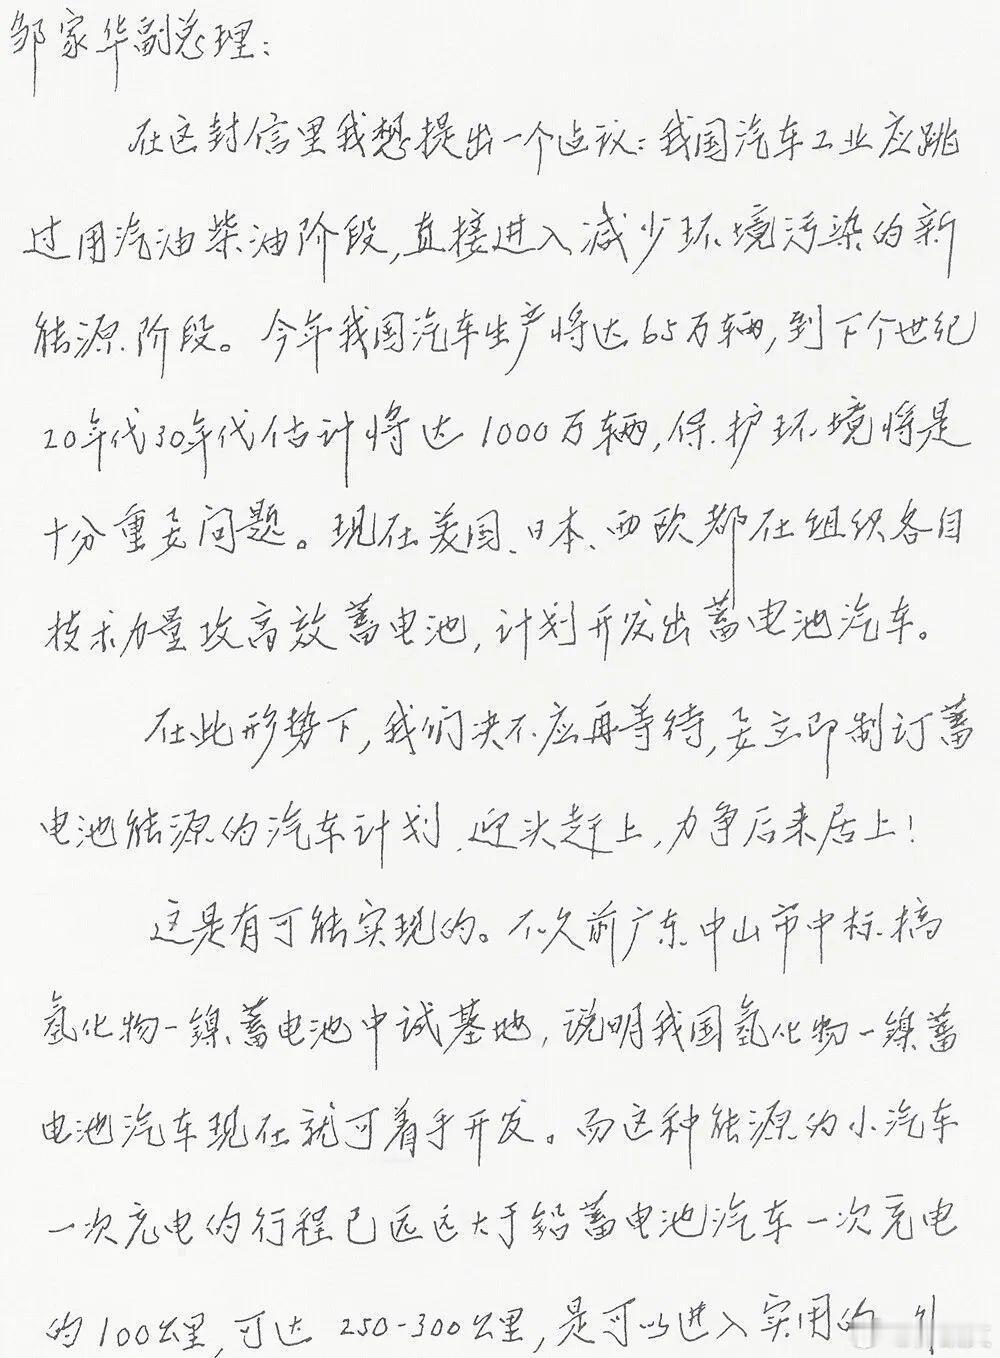 邹家华副总理：
在这封信里我想提出一个建议：我国汽车工业应跳
过用汽油柴油阶段，直接进入减少环境污染的新
能源阶段。今年我国汽车生产将达65万辆，到下个世纪
20年代30年代估计将达1000万辆，保护环境将是
十分重要问题。现在美国、日本、西欧都在组织各自
技术力量攻高效蓄电池，计划开发出蓄电池汽车。
在此形势下，我们决不应再等待，要立即制订蓄
电池能源的汽车计划，迎头赶上，力争后来居上！
这是有可能实现的。不久前广东中山市中标搞
氢化物一镍蓄电池中试基地，说明我国氢化物一镍蓄
电池汽车现在就可着手开发。而这种能源的小汽车
一次充电的行程已远远大于铅蓄电池汽车一次充电
的100公里，可达250-300公里，是可以进入实用的